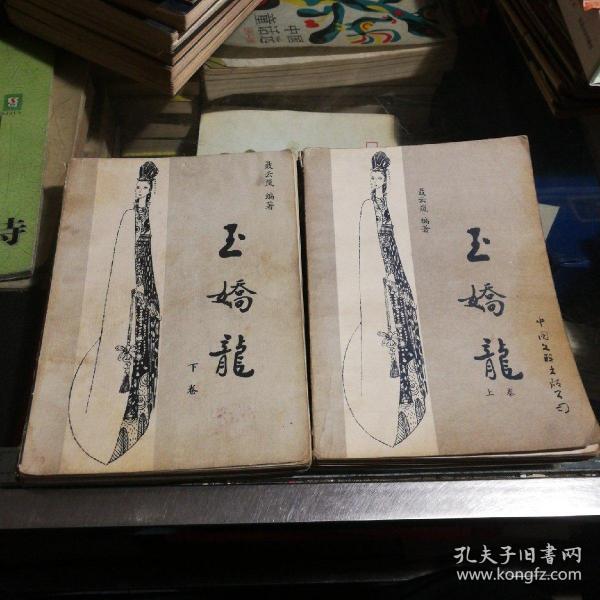 中国
童话选
诗
聂云岚 编著
玉嬌龍
下卷
聂云岚 编著
玉嬌龍
上卷
中国文联出版公司
孔夫子旧書网
www.kongfz.com